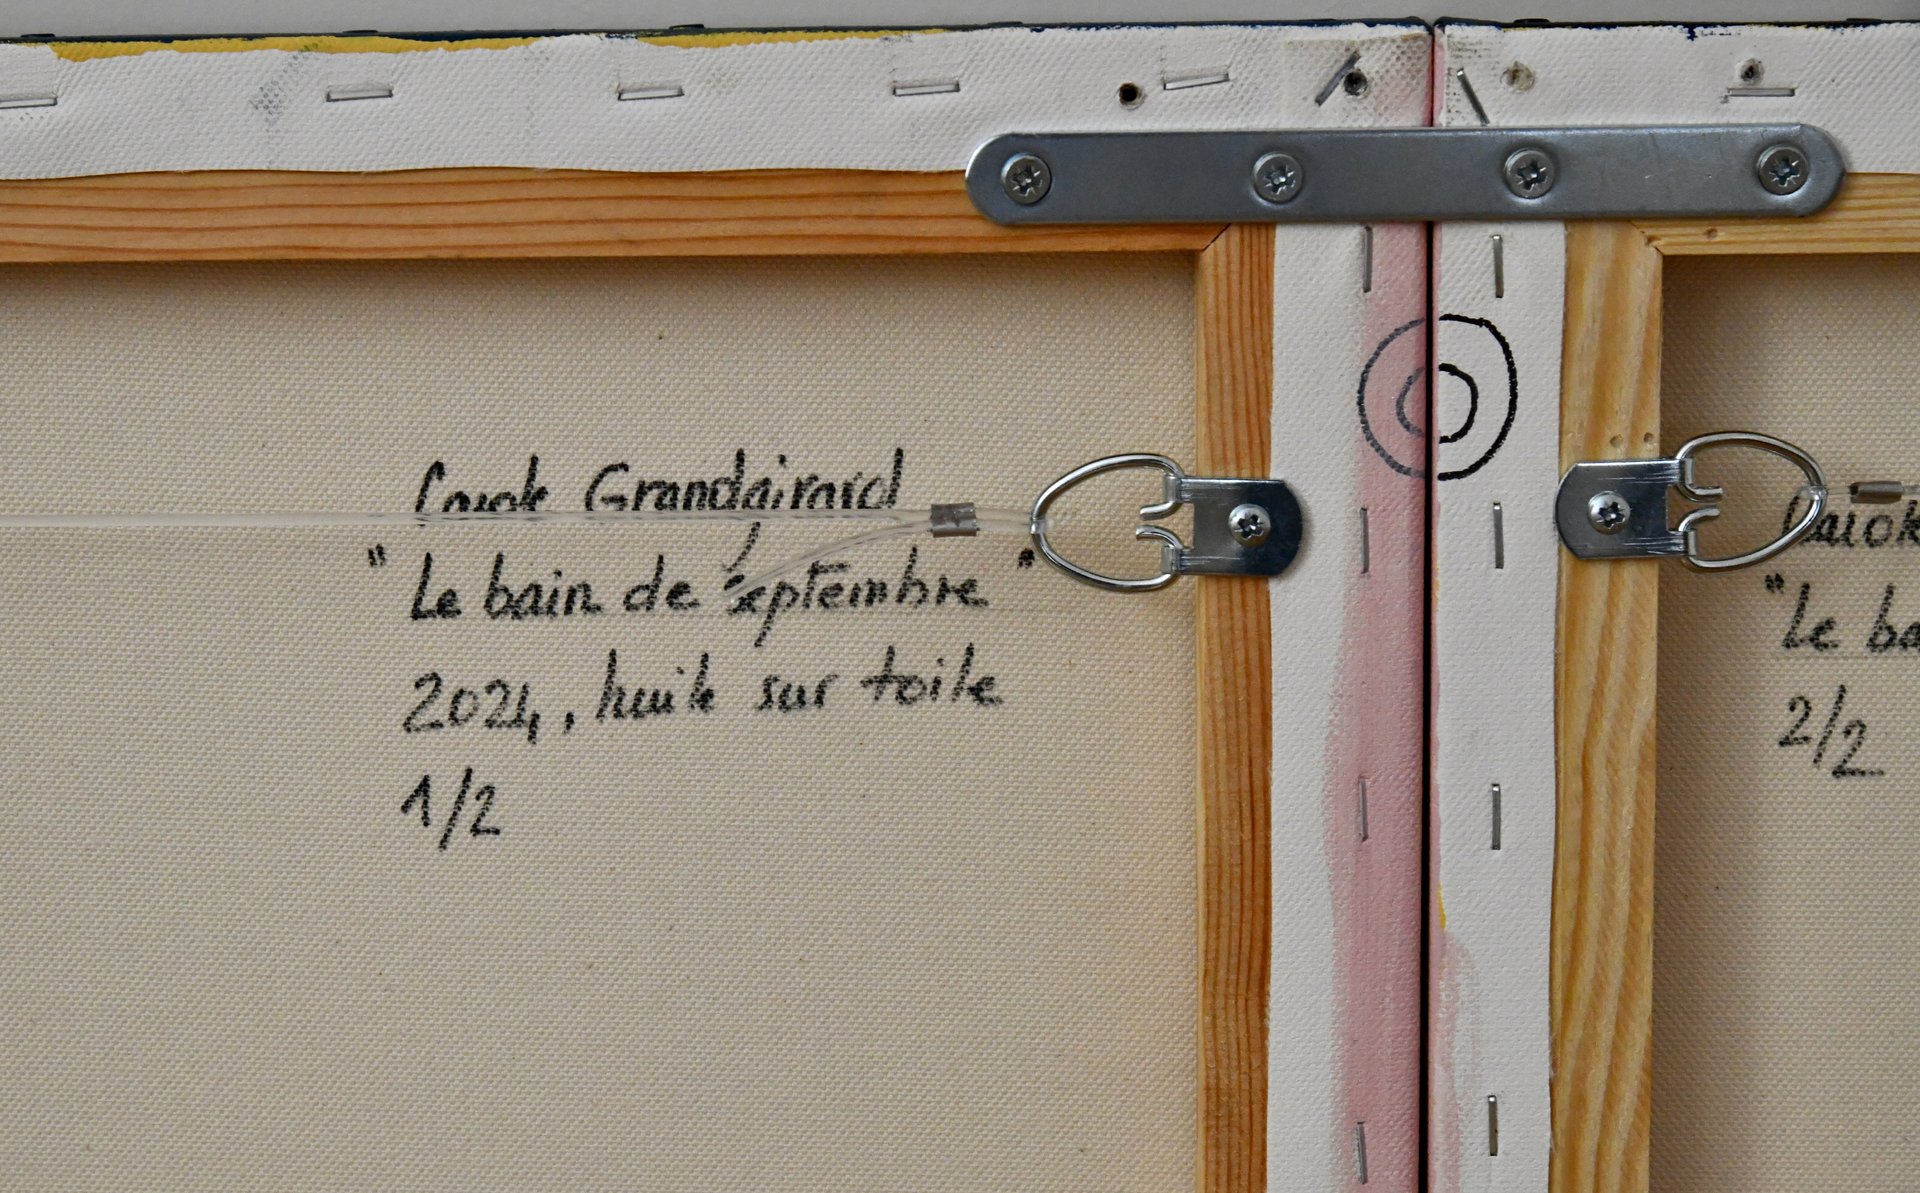 Carole Grandgirard
" Le bain de Septembre "
2024, huile sur toile
1/2
Carole
"Le ba
2/2